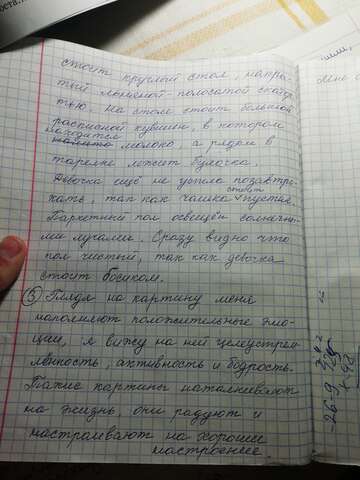 стоит круглый стол, накры-
тый льняной полосатой скатер-
тью. На столе стоит большой
расписной кувшин, в котором
находится молоко а рядом в
тарелке лежит булочка.
Девочка ещё не успела позавтра-
стоит
кать, так как чашка пустая.
Паркетный пол освещён солнечны-
ми лучами. Сразу видно что
пол чистый, так как девочка
стоит босиком.
5) Глядя на картину меня
наполняют положительные эмо-
ции, я вижу на ней целеустрем-
лённость, активность и бодрость.
Такие картины наталкивают
на жизнь, они радуют и
настраивают на хорошее
настроение.
Мне